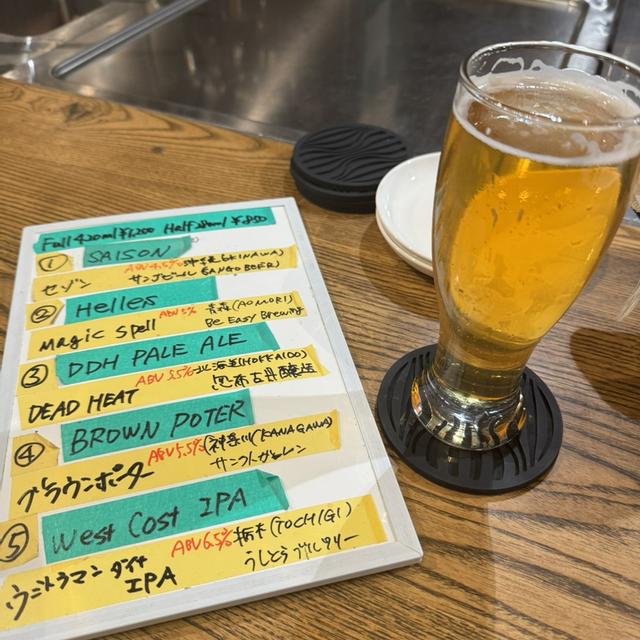 Full 420ml ¥1,200 Half 280ml ¥850
① SAISON
ABV4.5% 沖縄(OKINAWA)
セゾン サンゴビール(SANGO BEER)
② Helles
ABV5% 青森(AOMORI)
magic spell Be Easy Brewing
③ DDH PALE ALE
ABV5.5% 北海道(HOKKAIDO)
DEAD HEAT 忽布古丹醸造
④ BROWN POTER
ABV5.5% 神奈川(KANAGAWA)
ブラウンポーター サンクトガーレン
⑤ West Cost IPA
ABV6.5% 栃木(TOCHIGI)
うしとらブルワリー
IPA